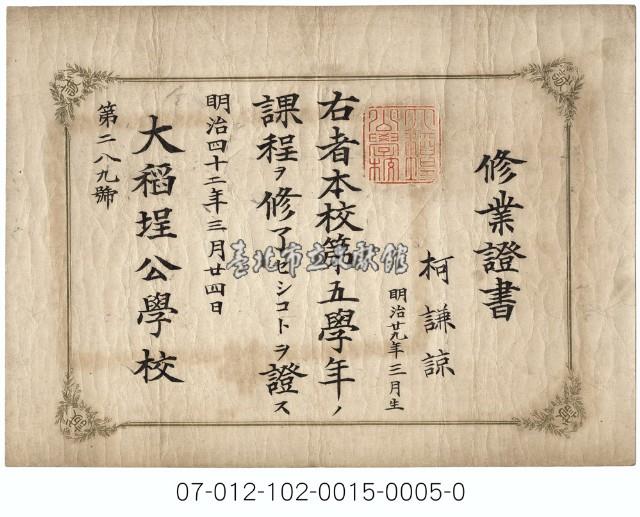 修業證書
柯謙諒
明治廿九年三月生
大稻埕公學校
右者本校第五學年ノ
課程ヲ修了セシコトヲ證ス
明治四十二年三月廿四日
大稻埕公學校
第二八九號
臺北市立文獻館
07-012-102-0015-0005-0